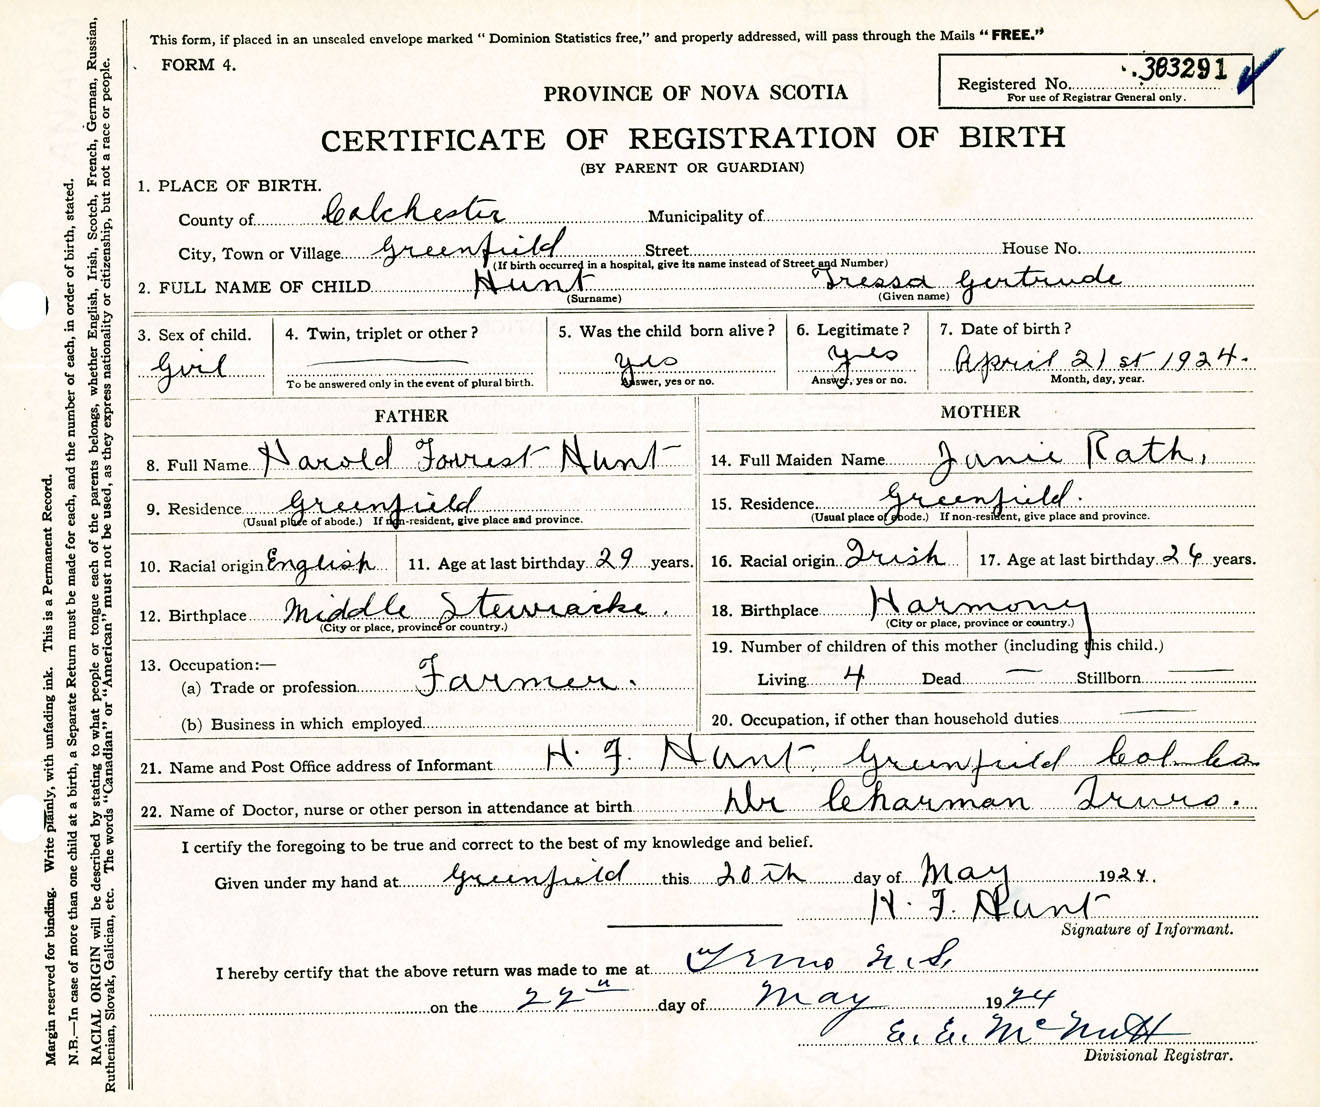 This form, if placed in an unsealed envelope marked “ Dominion Statistics free,” and properly addressed, will pass through the Mails “ FREE.”
FORM 4.
Registered No. 303291
For use of Registrar General only.
PROVINCE OF NOVA SCOTIA
CERTIFICATE OF REGISTRATION OF BIRTH
(BY PARENT OR GUARDIAN)
1. PLACE OF BIRTH.
County of Colchester Municipality of
City, Town or Village Greenfield Street House No.
(If birth occurred in a hospital, give its name instead of Street and Number)
2. FULL NAME OF CHILD Hunt Tressa Gertrude
(Surname) (Given name)
3. Sex of child. 4. Twin, triplet or other? 5. Was the child born alive? 6. Legitimate? 7. Date of birth?
Girl yes yes April 21st 1924.
To be answered only in the event of plural birth. Answer, yes or no. Answer, yes or no. Month, day, year.
FATHER MOTHER
8. Full Name Harold Forrest Hunt 14. Full Maiden Name Janie Rath,
9. Residence Greenfield 15. Residence Greenfield.
(Usual place of abode.) If non-resident, give place and province. (Usual place of abode.) If non-resident, give place and province.
10. Racial origin English 11. Age at last birthday 29 years. 16. Racial origin Irish 17. Age at last birthday years.
12. Birthplace Middle Stewiacke. 18. Birthplace Harmony
(City or place, province or country.) (City or place, province or country.)
13. Occupation:— 19. Number of children of this mother (including this child.)
(a) Trade or profession Farmer. Living 4 Dead — Stillborn —
(b) Business in which employed 20. Occupation, if other than household duties —
21. Name and Post Office address of Informant H. F. Hunt Greenfield Col. Co
22. Name of Doctor, nurse or other person in attendance at birth Dr Charman Truro.
I certify the foregoing to be true and correct to the best of my knowledge and belief.
Given under my hand at Greenfield this 20th day of May 1924.
H. F. Hunt
Signature of Informant.
I hereby certify that the above return was made to me at Truro N.S.
on the 22 day of May 1924
E. E. McNutt
Divisional Registrar.
Margin reserved for binding. Write plainly, with unfading ink. This is a Permanent Record.
N.B.—In case of more than one child at a birth, a Separate Return must be made for each, and the number of each, in order of birth, stated.
RACIAL ORIGIN will be described by stating to what people or tongue each of the parents belongs, whether English, Irish, Scotch, French, German, Russian,
Ruthenian, Slovak, Galician, etc. The words “Canadian” or “American” must not be used, as they express nationality or citizenship, but not a race or people.